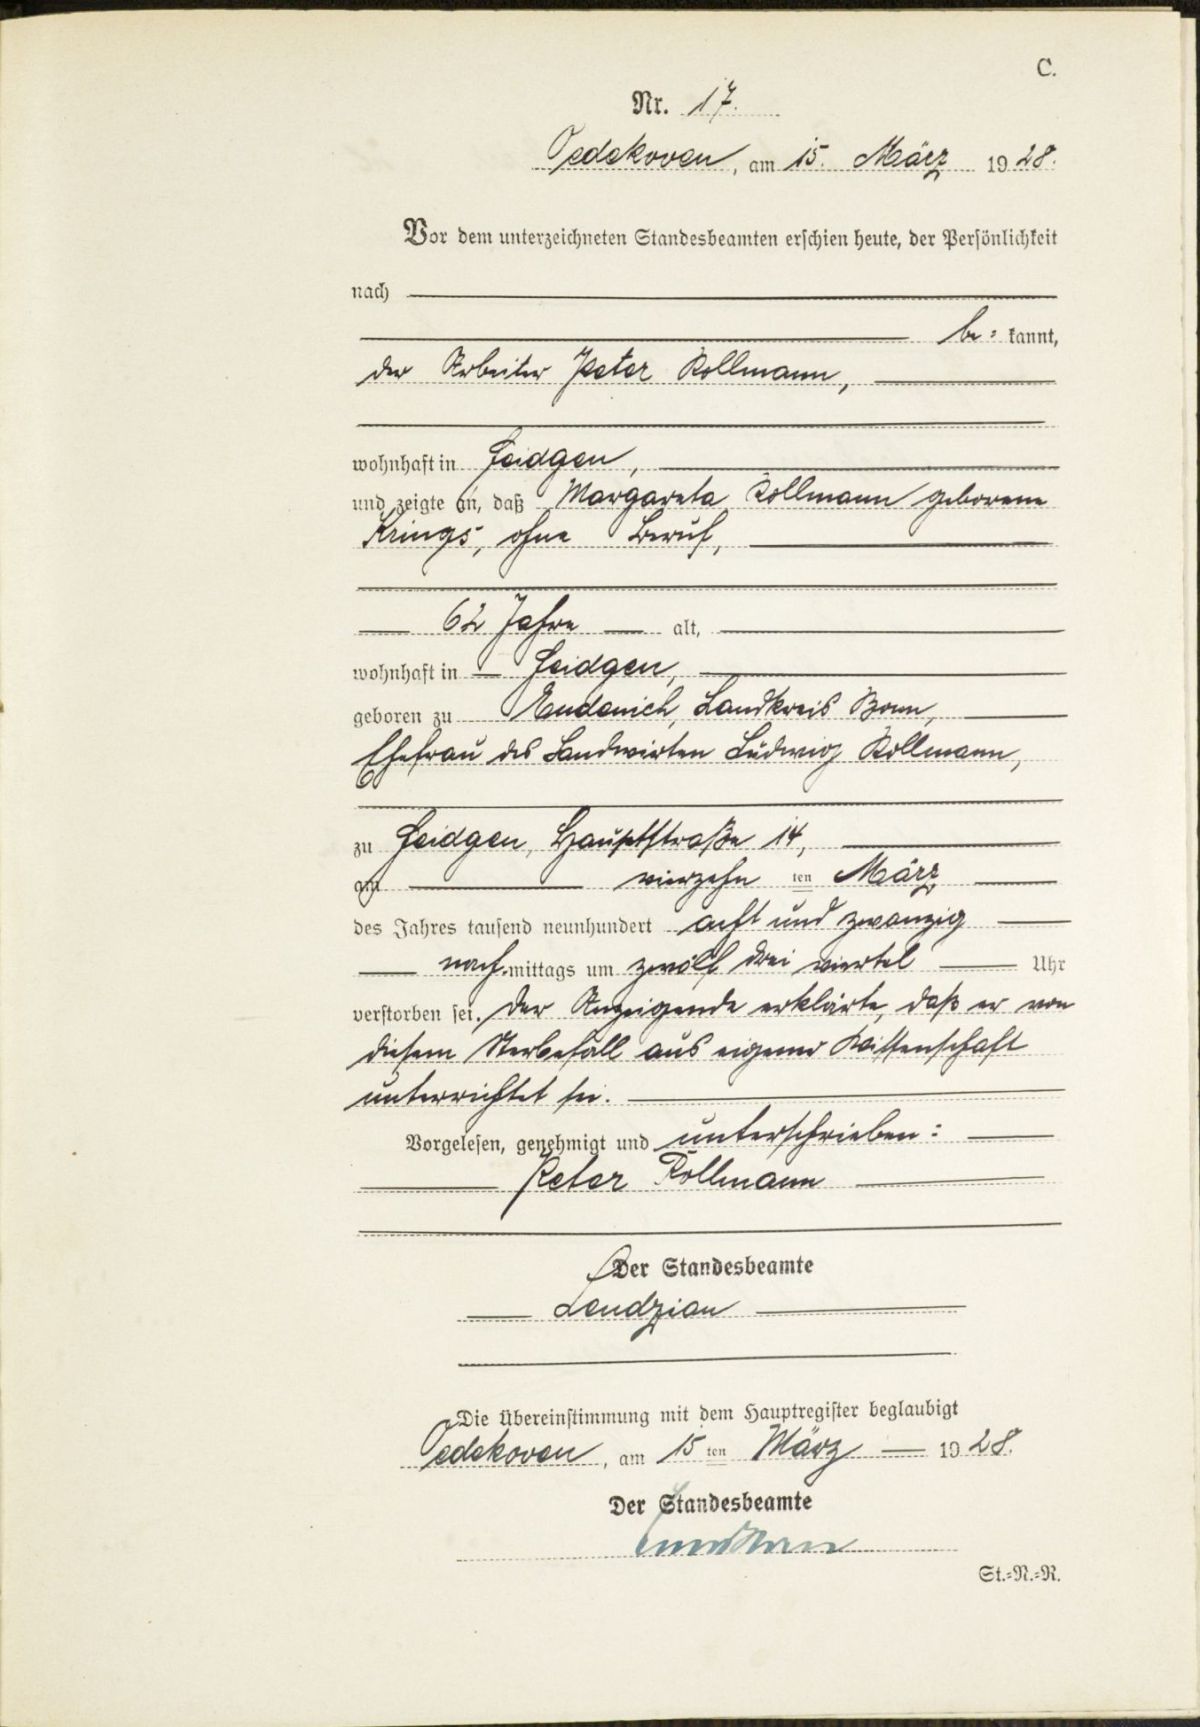 C.
Nr. 17.
Oedekoven, am 15. März 1928.
Vor dem unterzeichneten Standesbeamten erschien heute, der Persönlichkeit
nach
be= kannt,
der Arbeiter Peter Kollmann,
wohnhaft in Heidgen,
und zeigte an, daß Margareta Kollmann geborene
Krings, ohne Beruf,
62 Jahre alt,
wohnhaft in Heidgen,
geboren zu Endenich, Landkreis Bonn,
Ehefrau des Landwirten Ludwig Kollmann,
zu Heidgen, Hauptstraße 14,
am vierzehn ten März
des Jahres tausend neunhundert acht und zwanzig
nachmittags um zwölf drei viertel Uhr
verstorben sei. Der Anzeigende erklärte, daß er von
diesem Sterbefall aus eigener Wissenschaft
unterrichtet sei.
Vorgelesen, genehmigt und unterschrieben:
Peter Kollmann
Der Standesbeamte
Lendzian
Die Übereinstimmung mit dem Hauptregister beglaubigt
Oedekoven, am 15 ten März 1928.
Der Standesbeamte
St.=N.=R.